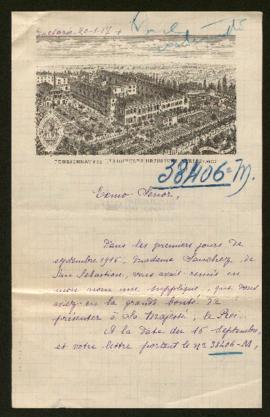 38406-M.
Exmo Senor,
Dans les premiers jours de
septembre 1916, Madame Sanchez, de
San Sebastian, vous avait remis en
mon nom une supplique, que vous
avez eu la grande bonté de
présenter à Sa Majesté, le Roi.
A la date du 15 septembre
et votre lettre portant le nº 38406-M,